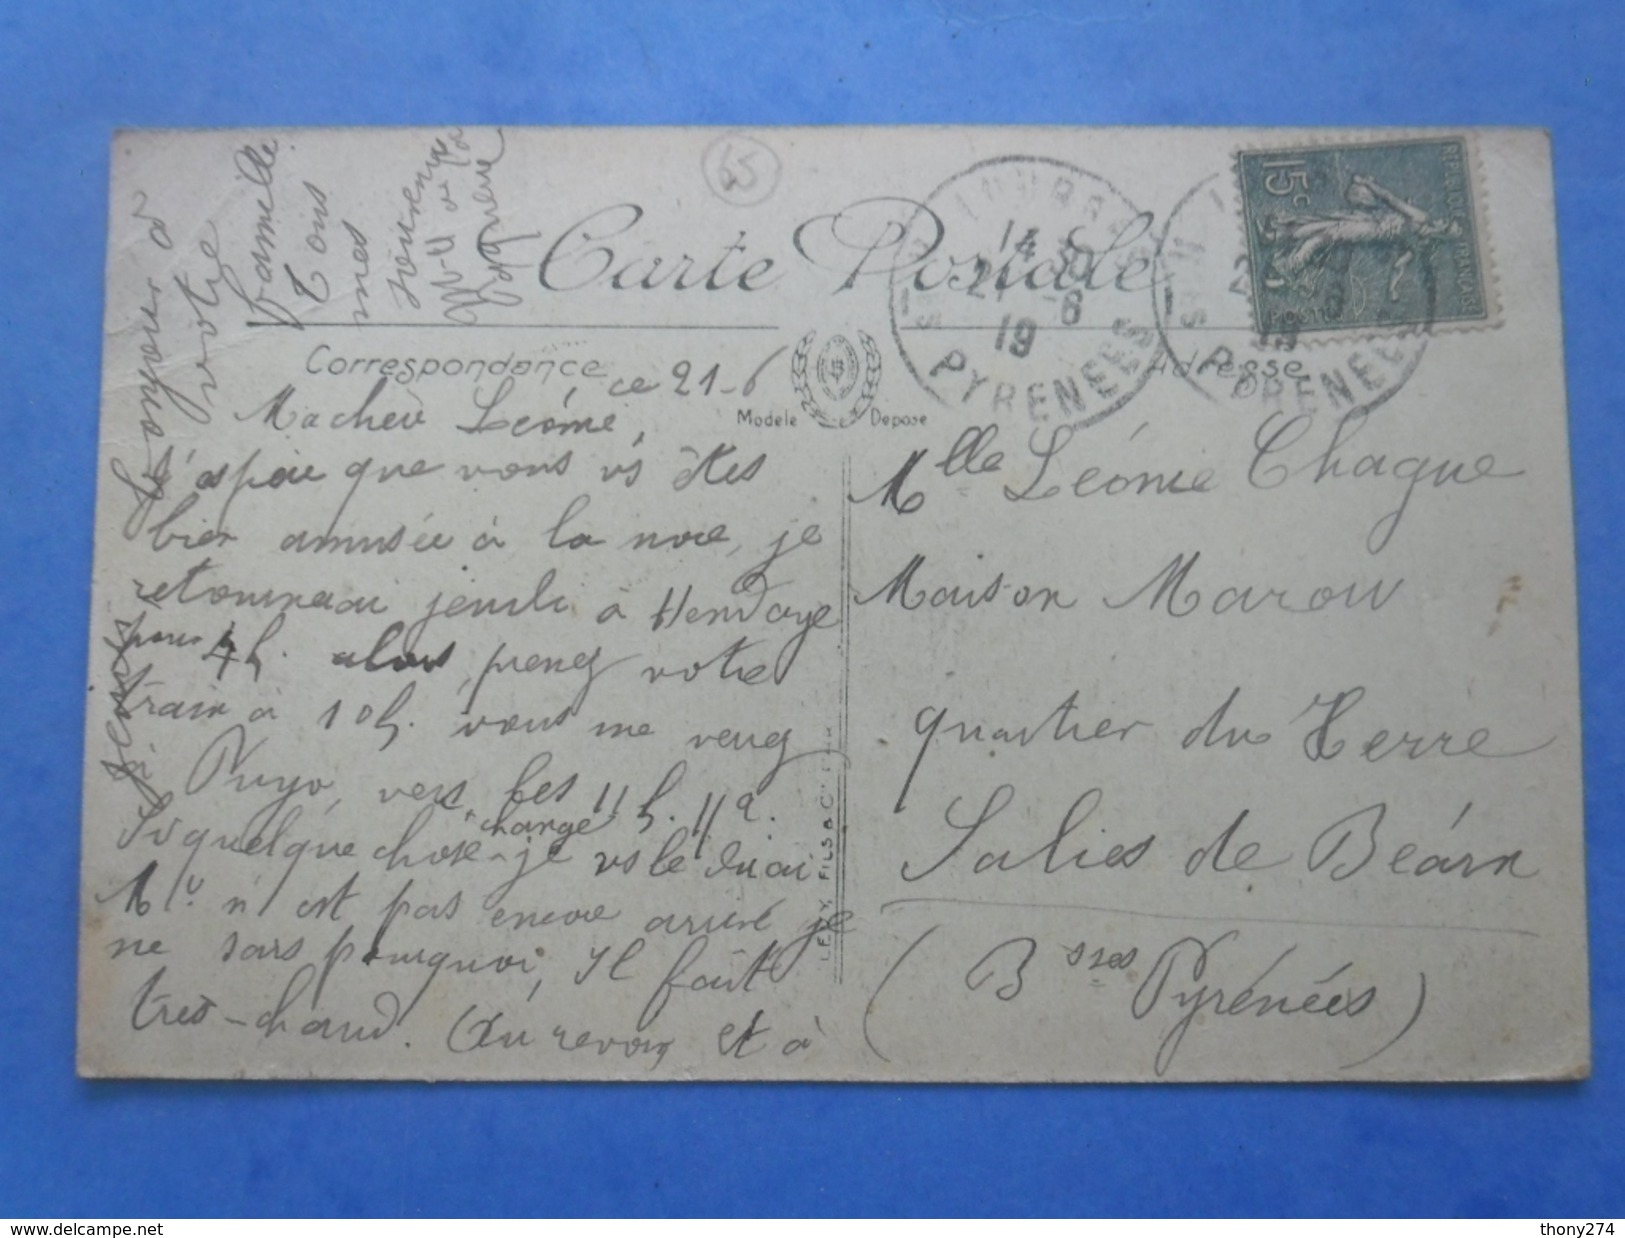 65
Carte Postale
Correspondance
Adresse
Modele Depose
LOURDES
14 30
21 -6
19
PYRENEES
15c
REPUBLIQUE FRANÇAISE
POSTES
ce 21-6
Ma cher Léonie,
J'aspère que vous vs êtes
bien amusée à la noce, je
retournerai jeudi à Hendaye
pour 4h. alors prenez votre
train à 10h. vous me venez
à Puyo, vers les 11h. 11
Si quelque chose change je vs le dirai
Mr n'est pas encore arrivé je
ne sais pourquoi, Il fait
très-chaud. Au revoir et à
bonjour à
votre
famille
Tous
mes
Mlle Léonie Chague
Maison Marou
quartier du Herre
Salies de Béarn
(Bsses Pyrénées)
LEVY FILS & Cie
www.delcampe.net
thony274